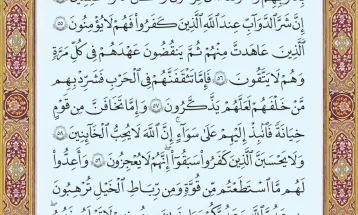 إِنَّ شَرَّ ٱلدَّوَآبِّ عِندَ ٱللَّهِ ٱلَّذِينَ كَفَرُوا۟ فَهُمْ لَا يُؤْمِنُونَ ٥٥
ٱلَّذِينَ عَٰهَدتَّ مِنْهُمْ ثُمَّ يَنقُضُونَ عَهْدَهُمْ فِى كُلِّ مَرَّةٍ
وَهُمْ لَا يَتَّقُونَ ٥٦ فَإِمَّا تَثْقَفَنَّهُمْ فِى ٱلْحَرْبِ فَشَرِّدْ بِهِم
مَّنْ خَلْفَهُمْ لَعَلَّهُمْ يَذَّكَّرُونَ ٥٧ وَإِمَّا تَخَافَنَّ مِن قَوْمٍ
خِيَانَةً فَٱنۢبِذْ إِلَيْهِمْ عَلَىٰ سَوَآءٍ ۚ إِنَّ ٱللَّهَ لَا يُحِبُّ ٱلْخَآئِنِينَ ٥٨
وَلَا يَحْسَبَنَّ ٱلَّذِينَ كَفَرُوا۟ سَبَقُوٓا۟ ۚ إِنَّهُمْ لَا يُعْجِزُونَ ٥٩ وَأَعِدُّوا۟
لَهُم مَّا ٱسْتَطَعْتُم مِّن قُوَّةٍ وَمِن رِّبَاطِ ٱلْخَيْلِ تُرْهِبُونَ